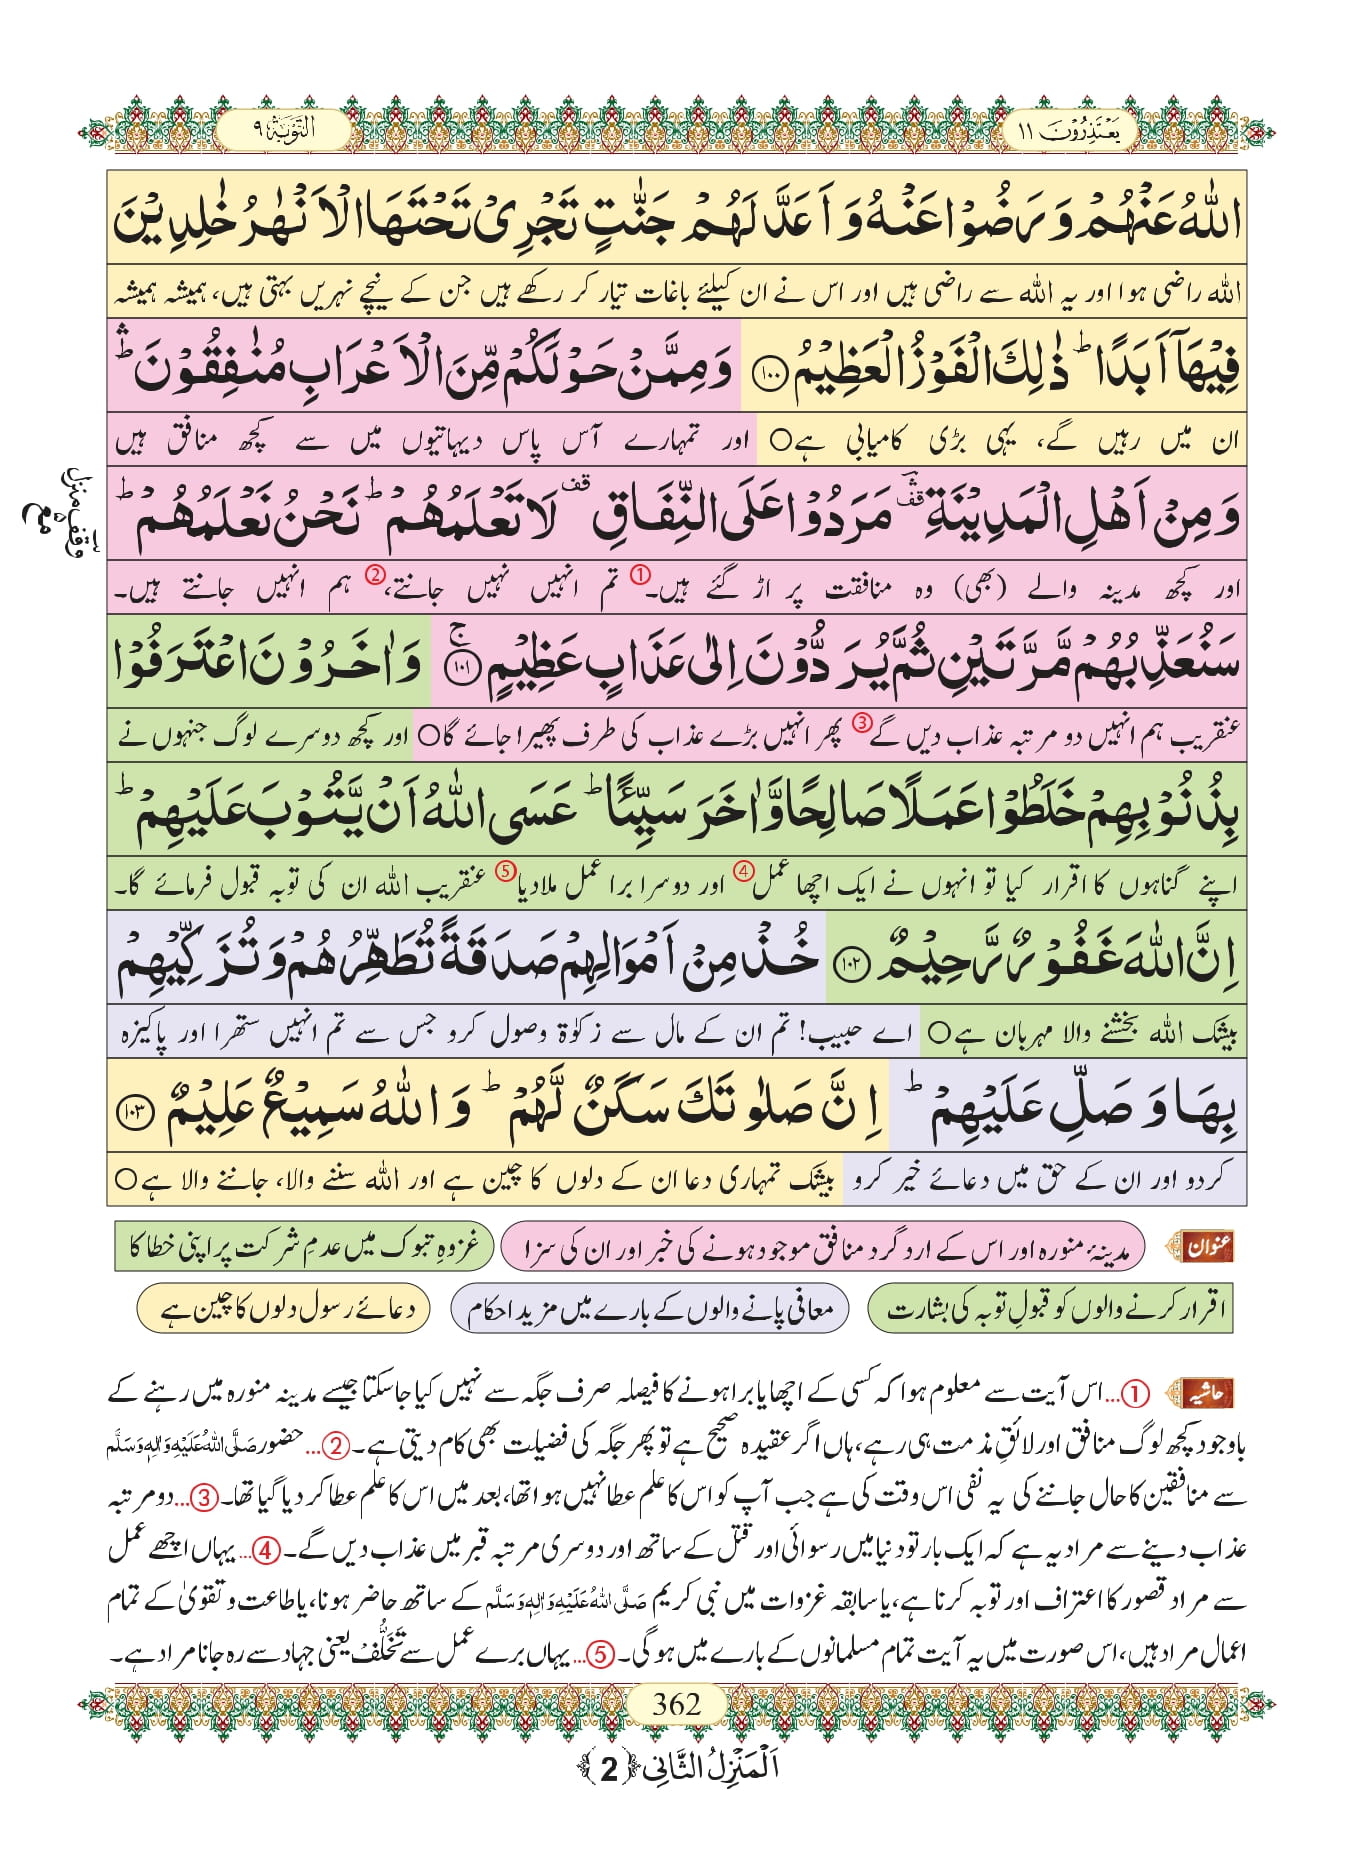 یَعْتَذِرُوْنَ ۱۱
التَّوْبَۃُ ۹
اللّٰهُ عَنْهُمْ وَ رَضُوْا عَنْهُ وَ اَعَدَّ لَهُمْ جَنّٰتٍ تَجْرِیْ تَحْتَهَا الْاَنْهٰرُ خٰلِدِیْنَ
اللہ راضی ہوا اور یہ اللہ سے راضی ہیں اور اس نے ان کیلئے باغات تیار کر رکھے ہیں جن کے نیچے نہریں بہتی ہیں، ہمیشہ ہمیشہ
فِیْهَاۤ اَبَدًاؕ ذٰلِكَ الْفَوْزُ الْعَظِیْمُ ﴿۱۰۰﴾ وَ مِمَّنْ حَوْلَكُمْ مِّنَ الْاَعْرَابِ مُنٰفِقُوْنَ ۛؕ
ان میں رہیں گے، یہی بڑی کامیابی ہے○ اور تمہارے آس پاس دیہاتیوں میں سے کچھ منافق ہیں
وَ مِنْ اَهْلِ الْمَدِیْنَةِ ۛؔقف مَرَدُوْا عَلَى النِّفَاقِ قف لَا تَعْلَمُهُمْؕ نَحْنُ نَعْلَمُهُمْؕ
وقف منزل
مع
اور کچھ مدینہ والے (بھی) وہ منافقت پر اڑ گئے ہیں۔① تم انہیں نہیں جانتے،② ہم انہیں جانتے ہیں۔
سَنُعَذِّبُهُمْ مَّرَّتَیْنِ ثُمَّ یُرَدُّوْنَ اِلٰى عَذَابٍ عَظِیْمٍ ﴿۱۰۱﴾ۚ وَ اٰخَرُوْنَ اعْتَرَفُوْا
عنقریب ہم انہیں دو مرتبہ عذاب دیں گے③ پھر انہیں بڑے عذاب کی طرف پھیرا جائے گا○ اور کچھ دوسرے لوگ جنہوں نے
بِذُنُوْبِهِمْ خَلَطُوْا عَمَلًا صَالِحًا وَّ اٰخَرَ سَیِّئًاؕ عَسَى اللّٰهُ اَنْ یَّتُوْبَ عَلَیْهِمْؕ
اپنے گناہوں کا اقرار کیا تو انہوں نے ایک اچھا عمل④ اور دوسرا برا عمل ملادیا⑤ عنقریب اللہ ان کی توبہ قبول فرمائے گا۔
اِنَّ اللّٰهَ غَفُوْرٌ رَّحِیْمٌ ﴿۱۰۲﴾ خُذْ مِنْ اَمْوَالِهِمْ صَدَقَةً تُطَهِّرُهُمْ وَ تُزَكِّیْهِمْ
بیشک اللہ بخشنے والا مہربان ہے○ اے حبیب! تم ان کے مال سے زکوٰۃ وصول کرو جس سے تم انہیں ستھرا اور پاکیزہ
بِهَا وَ صَلِّ عَلَیْهِمْؕ اِنَّ صَلٰوتَكَ سَكَنٌ لَّهُمْؕ وَ اللّٰهُ سَمِیْعٌ عَلِیْمٌ ﴿۱۰۳﴾
کردو اور ان کے حق میں دعائے خیر کرو بیشک تمہاری دعا ان کے دلوں کا چین ہے اور اللہ سننے والا، جاننے والا ہے○
عنوان مدینۂ منورہ اور اس کے ارد گرد منافق موجود ہونے کی خبر اور ان کی سزا غزوہِ تبوک میں عدمِ شرکت پر اپنی خطا کا
اقرار کرنے والوں کو قبولِ توبہ کی بشارت معافی پانے والوں کے بارے میں مزید احکام دعائے رسول دلوں کا چین ہے
حاشیہ ①...اس آیت سے معلوم ہوا کہ کسی کے اچھا یا برا ہونے کا فیصلہ صرف جگہ سے نہیں کیا جاسکتا جیسے مدینہ منورہ میں رہنے کے
باوجود کچھ لوگ منافق اور لائقِ مذمت ہی رہے، ہاں اگر عقیدہ صحیح ہے تو پھر جگہ کی فضیلت بھی کام دیتی ہے۔ ②...حضور صَلَّی اللهُ عَلَیْهِ وَاٰلِهٖ وَسَلَّم
سے منافقین کا حال جاننے کی یہ نفی اس وقت کی ہے جب آپ کو اس کا علم عطا نہیں ہوا تھا، بعد میں اس کا علم عطا کر دیا گیا تھا۔ ③...دو مرتبہ
عذاب دینے سے مراد یہ ہے کہ ایک بار تو دنیا میں رسوائی اور قتل کے ساتھ اور دوسری مرتبہ قبر میں عذاب دیں گے۔ ④...یہاں اچھے عمل
سے مراد قصور کا اعتراف اور توبہ کرنا ہے، یا سابقہ غزوات میں نبی کریم صَلَّی اللهُ عَلَیْهِ وَاٰلِهٖ وَسَلَّم کے ساتھ حاضر ہونا، یا طاعت و تقویٰ کے تمام
اعمال مراد ہیں، اس صورت میں یہ آیت تمام مسلمانوں کے بارے میں ہوگی۔ ⑤...یہاں برے عمل سے تَخَلُّف یعنی جہاد سے رہ جانا مراد ہے۔
362
اَلْمَنْزِلُ الثَّانِی ﴿2﴾